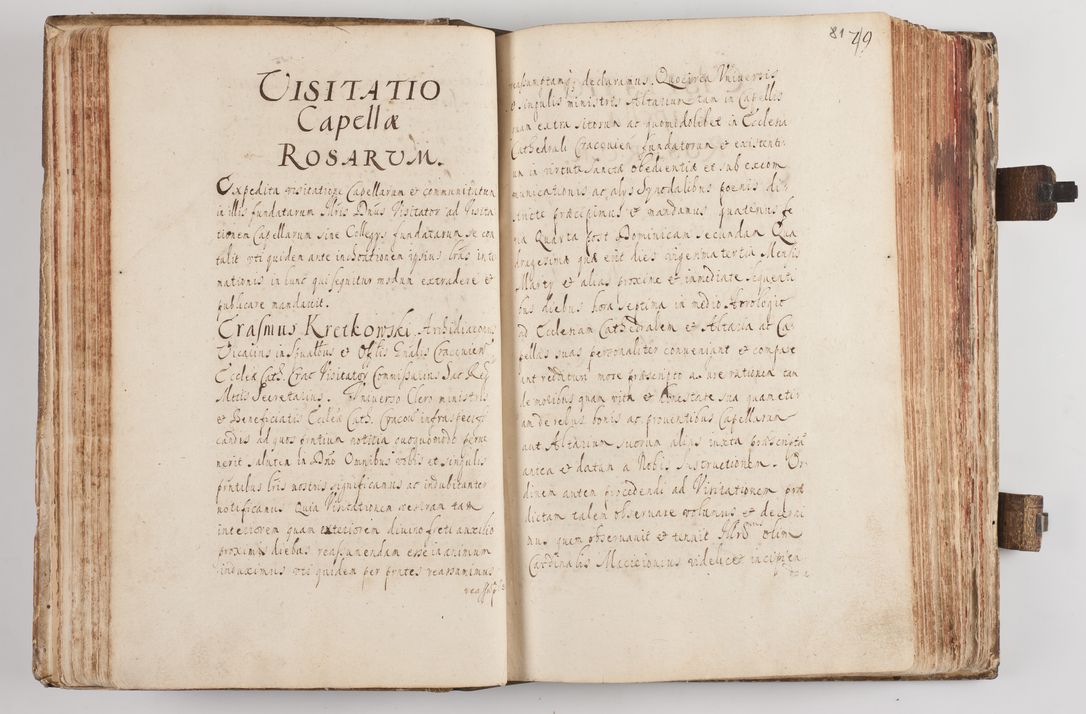 VISITATIO
Capellæ
ROSARVM.
Expedita visitatione Capellarum et communitatum
in illis fundatarum Illris Dnus Visitator ad Visita
tionem Capellarum sine Collegys fundatarum se con
tulit vti quidem ante inchoationem ipsius lras inti
mationis in hunc qui sequitur modum extradere et
publicare mandauit.
Erasmus Kretkowski Archidiaconus
Vicarius in Spualbus et Offlis Gnalis Cracquien
Ecclæ Cath. Crac Visitator Commissarius Sac. Reg
Mttis Secretarius. Vniuerso Clero ministris
et Beneficiatis Ecclæ Cath. Cracou infraspecifi
candis ad quos pntium notitia quoquomodo perue
nerit salutem in Dno Omnibus vobis et singulis
pntibus lris nostris significamus ac indubitanter
notificamus Quia Visitationem nostram tam
interiorem quam exteriorem diuino freti auxilio
proximis diebus reassumendam esse in animum
induximus vti quidem per pntes reassumimus
81 79
reassumptamq; declaramus Quocirca Vniuersis
et singulis ministris Altarium tam in Capellis
quam extra sitorum ac quomodolibet in Ecclesia
Cathedrali Cracquien fundatorum et existenti
um in virtute Sanctæ obedientiæ et sub excom
municationis ac alys Synodalibus poenis di
stricte præcipimus et mandamus quatenus fe
ria Quarta post Dominicam secundam Qua
dragesimæ quæ erit dies vigesima tertia Mensis
Marty et alias proxime et immediate sequenti
bus diebus hora septima in medio horologio
ad Ecclesiam Cathedralem et Altaria ac Ca
pellas suas personaliter conueniant et compare
ant reddituri more præscripto ac iure rationem tam
de moribus quam vita et honestate sua quam eti
am de rebus bonis ac prouentibus Capellarum
aut Altarium suorum alias iuxta præscripta
antea et datam a Nobis Instructionem. Or
dinem autem procedendi ad Visitationem præ
dictam talem obseruare volumus et decreui
mus quem obseruauit et tenuit Illrmus olim
Cardinalis Macieiouius videlicet incipien